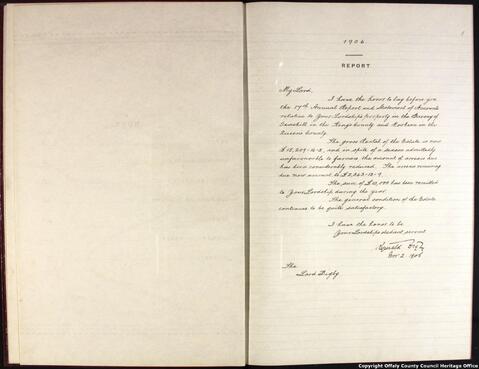 1906
REPORT
My Lord,
I have the honor to lay before you
the 17th Annual Report and Statement of Accounts
relative to Your Lordships property in the Barony of
Geashill in the Kings County and in the
Queens County.
The gross Rental of the Estate is now
and in spite of a season admittedly
unfavourable to farmers the amount of arrears
has been considerably reduced. The arrears remaining
due now amount to
The sum of £10,000 has been remitted
to Your Lordship during the year.
The general condition of the Estate
continues to be quite satisfactory.
I have the honor to be
Your Lordships obedient servant
Reginald Digby
Nov 2
The
Lord Digby
Copyright Offaly County Council Heritage Office